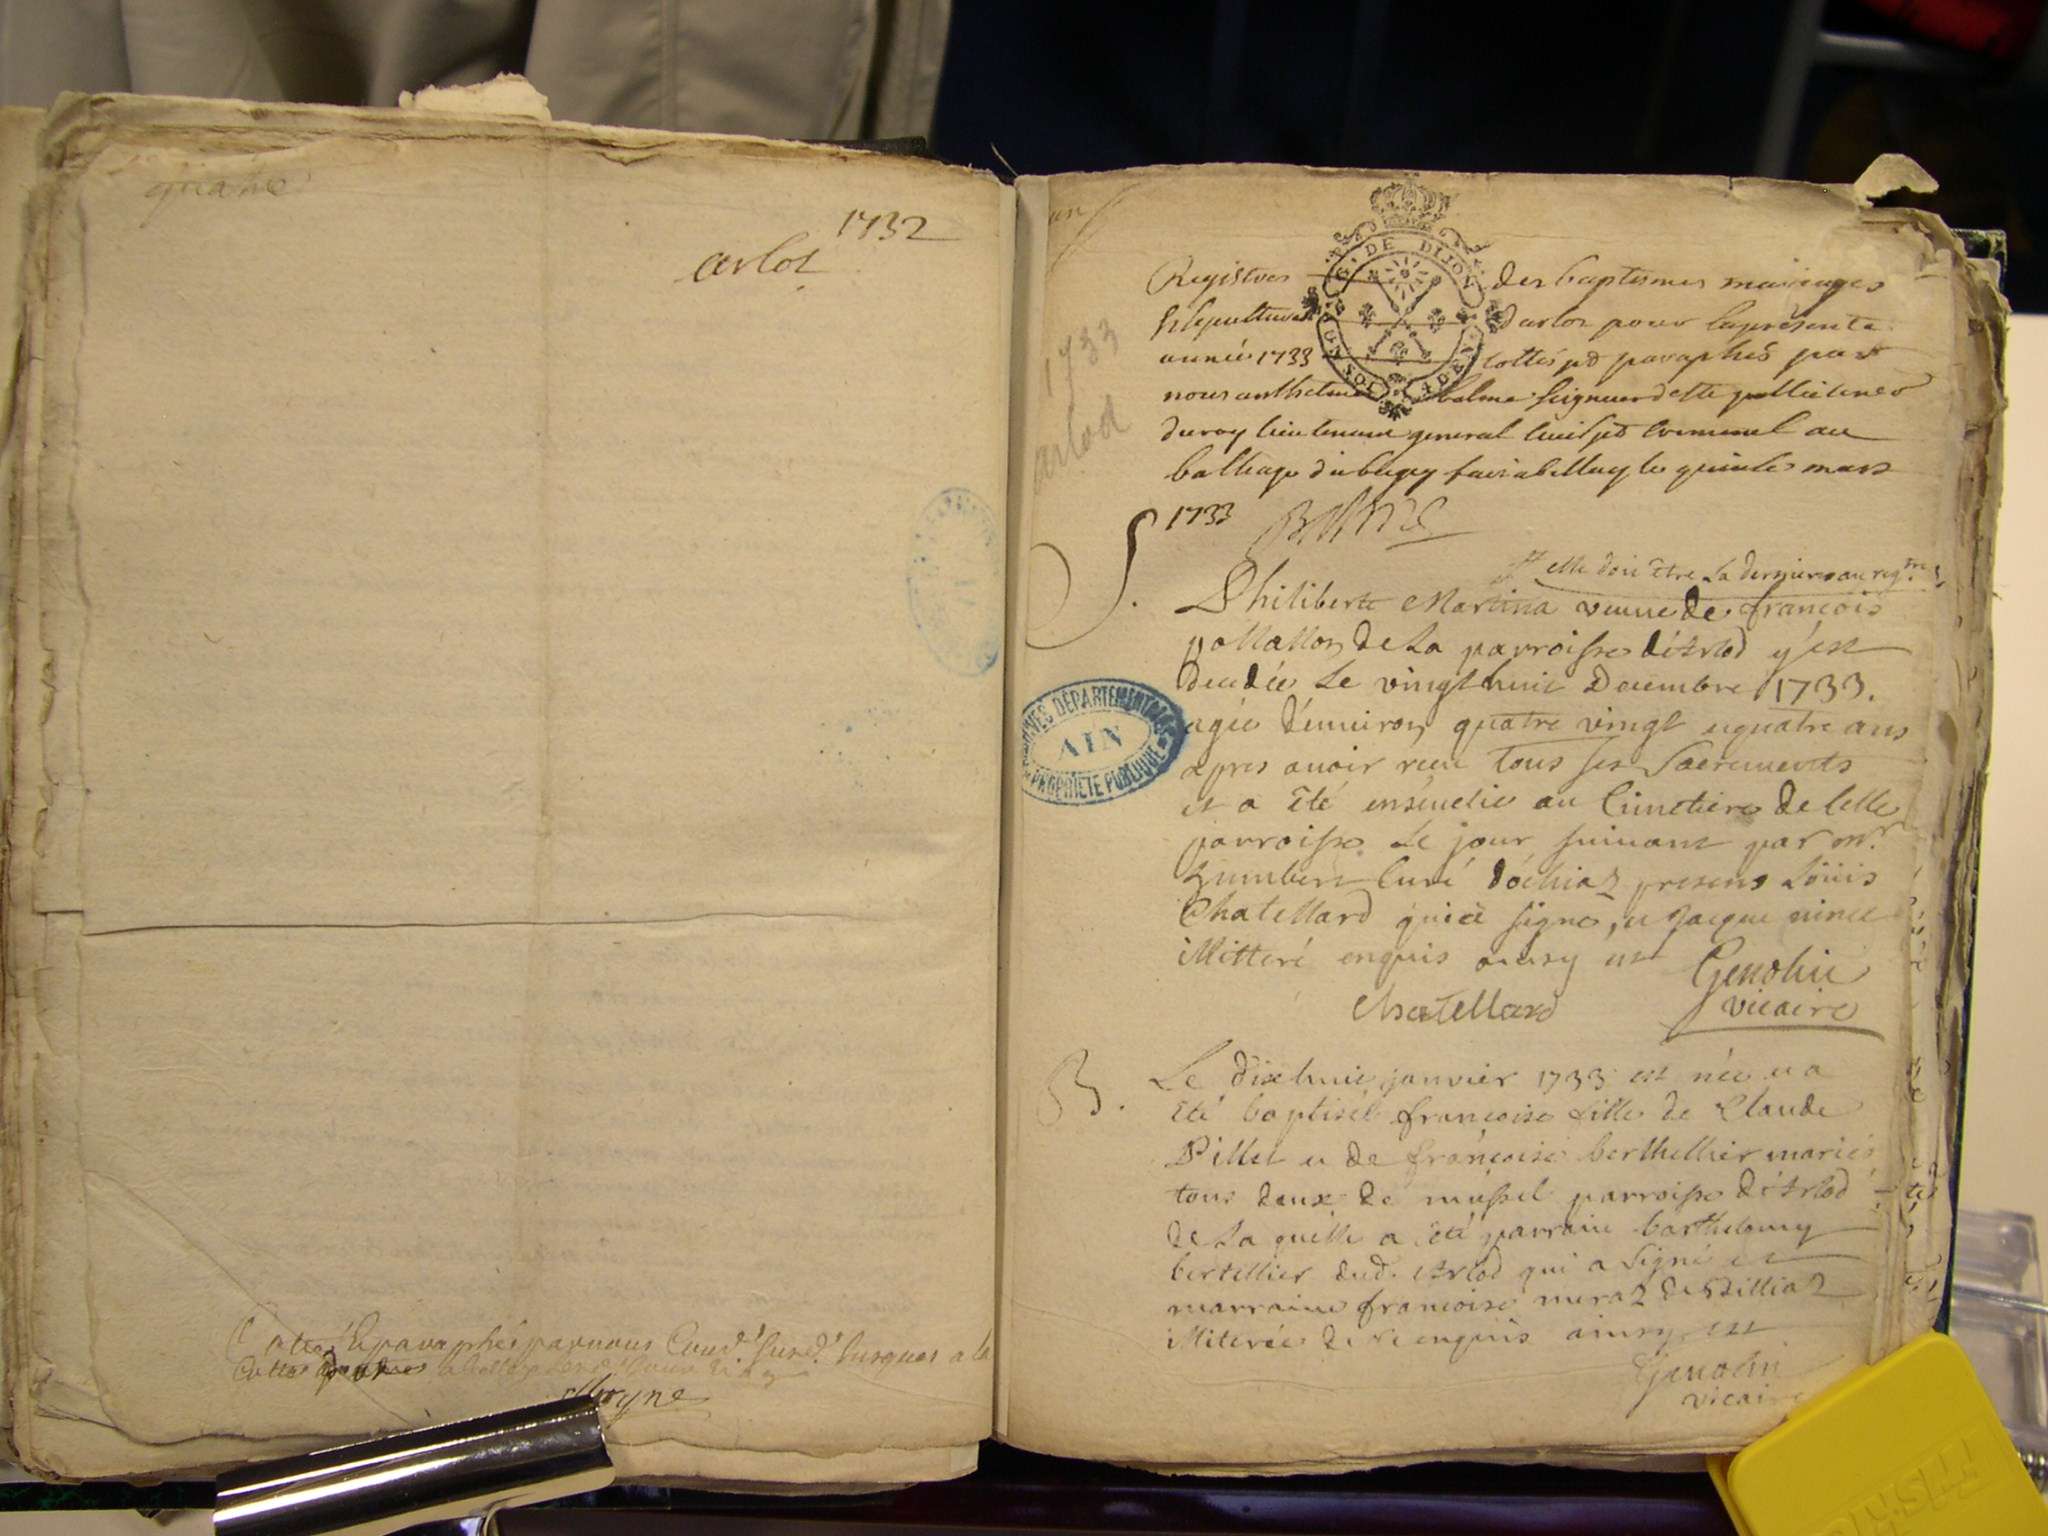 quatre
1732
arlot
un
G. DE DIJON
1733
arlod
Registres des baptesmes mariages
sepultures darloz pour lapresente
année 1733 cottés et paraphés par
nous anthelme balme seigneur de
du roy lieutenant general civil et criminel au
balliage du bugey fait a belley le quinze mars
1733
Balme
elle doit être la derniere au reg.tre
S.
Philiberte Martina veuve de françois
de la parroisse d'Arlod y est
decedée le vingt huit Decembre 1733.
agée d'environ quatre vingt et quatre ans
apres avoir receu tous ses Sacrements
et a été ensevelie au Cimetiere de celle
parroisse le jour suivant par mr.
humbert Curé d'ochiaz presens Loüis
Chatellard qui a signé, et Jacque
illitteré enquis ainsy est
Genolin
Chatellard
vicaire
ARCHIVES DÉPARTEMENTALES
AIN
PROPRIÉTÉ PUBLIQUE
B.
Le dixhuit janvier 1733 est née et a
été baptisée françoise fille de Claude
Pillet et de françoise berthellier mariés
tous deux de mussel parroisse d'Arlod
de la quelle a été parrain barthelemy
bertellier dud. Arlod qui a signé et
marraine françoise meraz de
illiterée de ce enquis ainsy est
Genolin
vicaire
Cotté et paraphé par nous susd. jusques a la